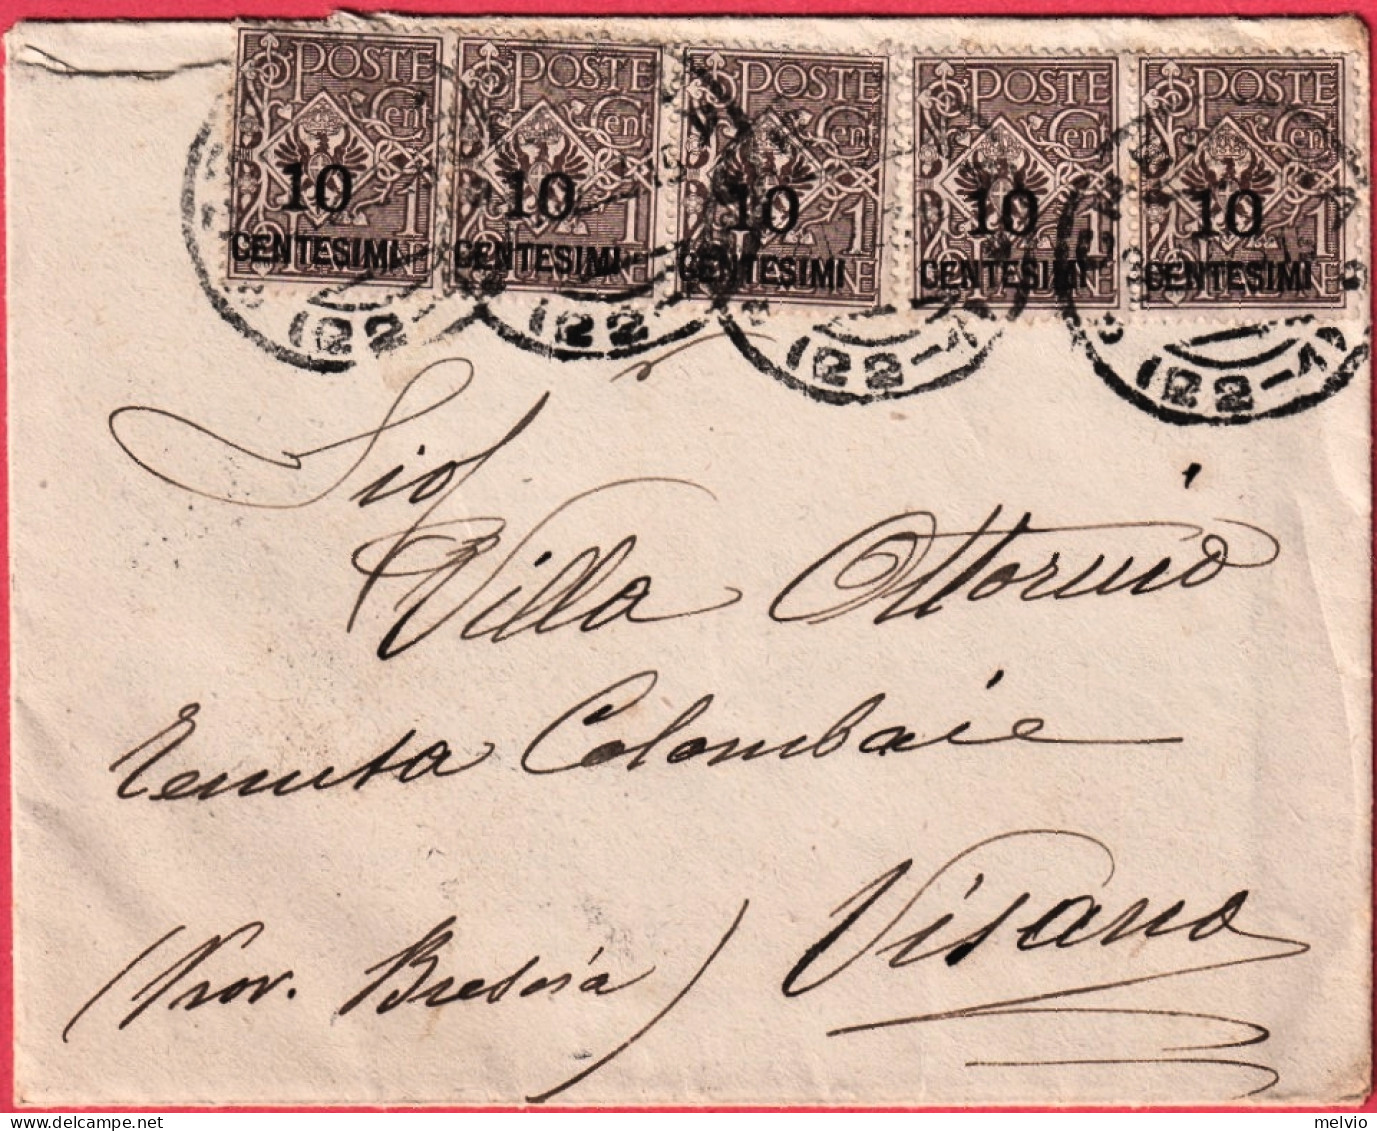 POSTE POSTE POSTE POSTE POSTE
Cent Cent Cent Cent Cent
10 10 10 10 10
1 1 1 1 1
CENTESIMI CENTESIMI CENTESIMI CENTESIMI CENTESIMI
(22 (22 (22-1 (22-1
Sig
Villa Ottorino
Tenuta Colombaie
(Prov. Brescia) Visano
melvio